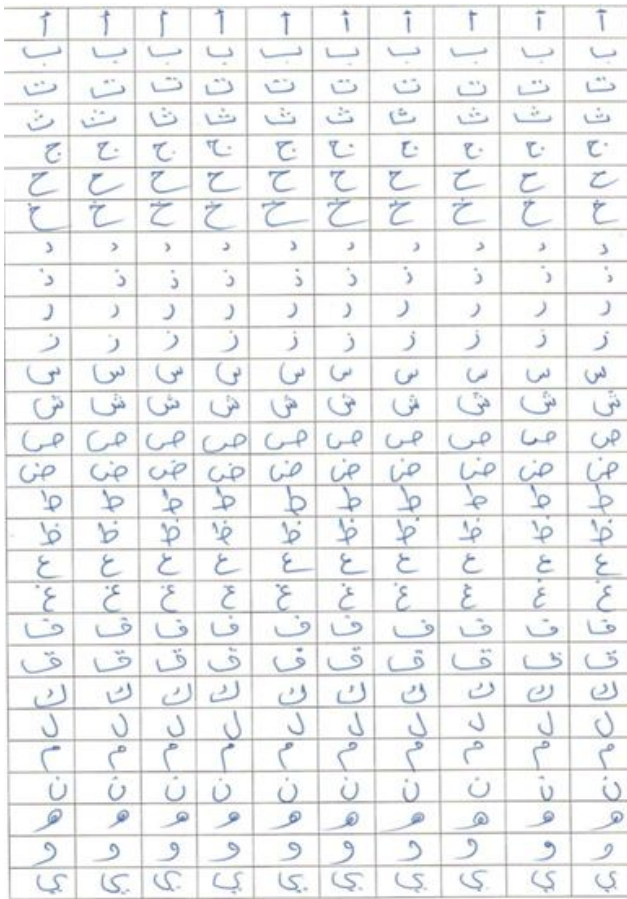 أ أ أ أ أ أ أ أ أ أ
ب ب ب ب ب ب ب ب ب ب
ت ت ت ت ت ت ت ت ت ت
ث ث ث ث ث ث ث ث ث ث
ج ج ج ج ج ج ج ج ج ج
ح ح ح ح ح ح ح ح ح ح
خ خ خ خ خ خ خ خ خ خ
د د د د د د د د د د
ذ ذ ذ ذ ذ ذ ذ ذ ذ ذ
ر ر ر ر ر ر ر ر ر ر
ز ز ز ز ز ز ز ز ز ز
س س س س س س س س س س
ش ش ش ش ش ش ش ش ش ش
ص ص ص ص ص ص ص ص ص ص
ض ض ض ض ض ض ض ض ض ض
ط ط ط ط ط ط ط ط ط ط
ظ ظ ظ ظ ظ ظ ظ ظ ظ ظ
ع ع ع ع ع ع ع ع ع ع
غ غ غ غ غ غ غ غ غ غ
ف ف ف ف ف ف ف ف ف ف
ق ق ق ق ق ق ق ق ق ق
ك ك ك ك ك ك ك ك ك ك
ل ل ل ل ل ل ل ل ل ل
م م م م م م م م م م
ن ن ن ن ن ن ن ن ن ن
ه ه ه ه ه ه ه ه ه ه
و و و و و و و و و و
ي ي ي ي ي ي ي ي ي ي